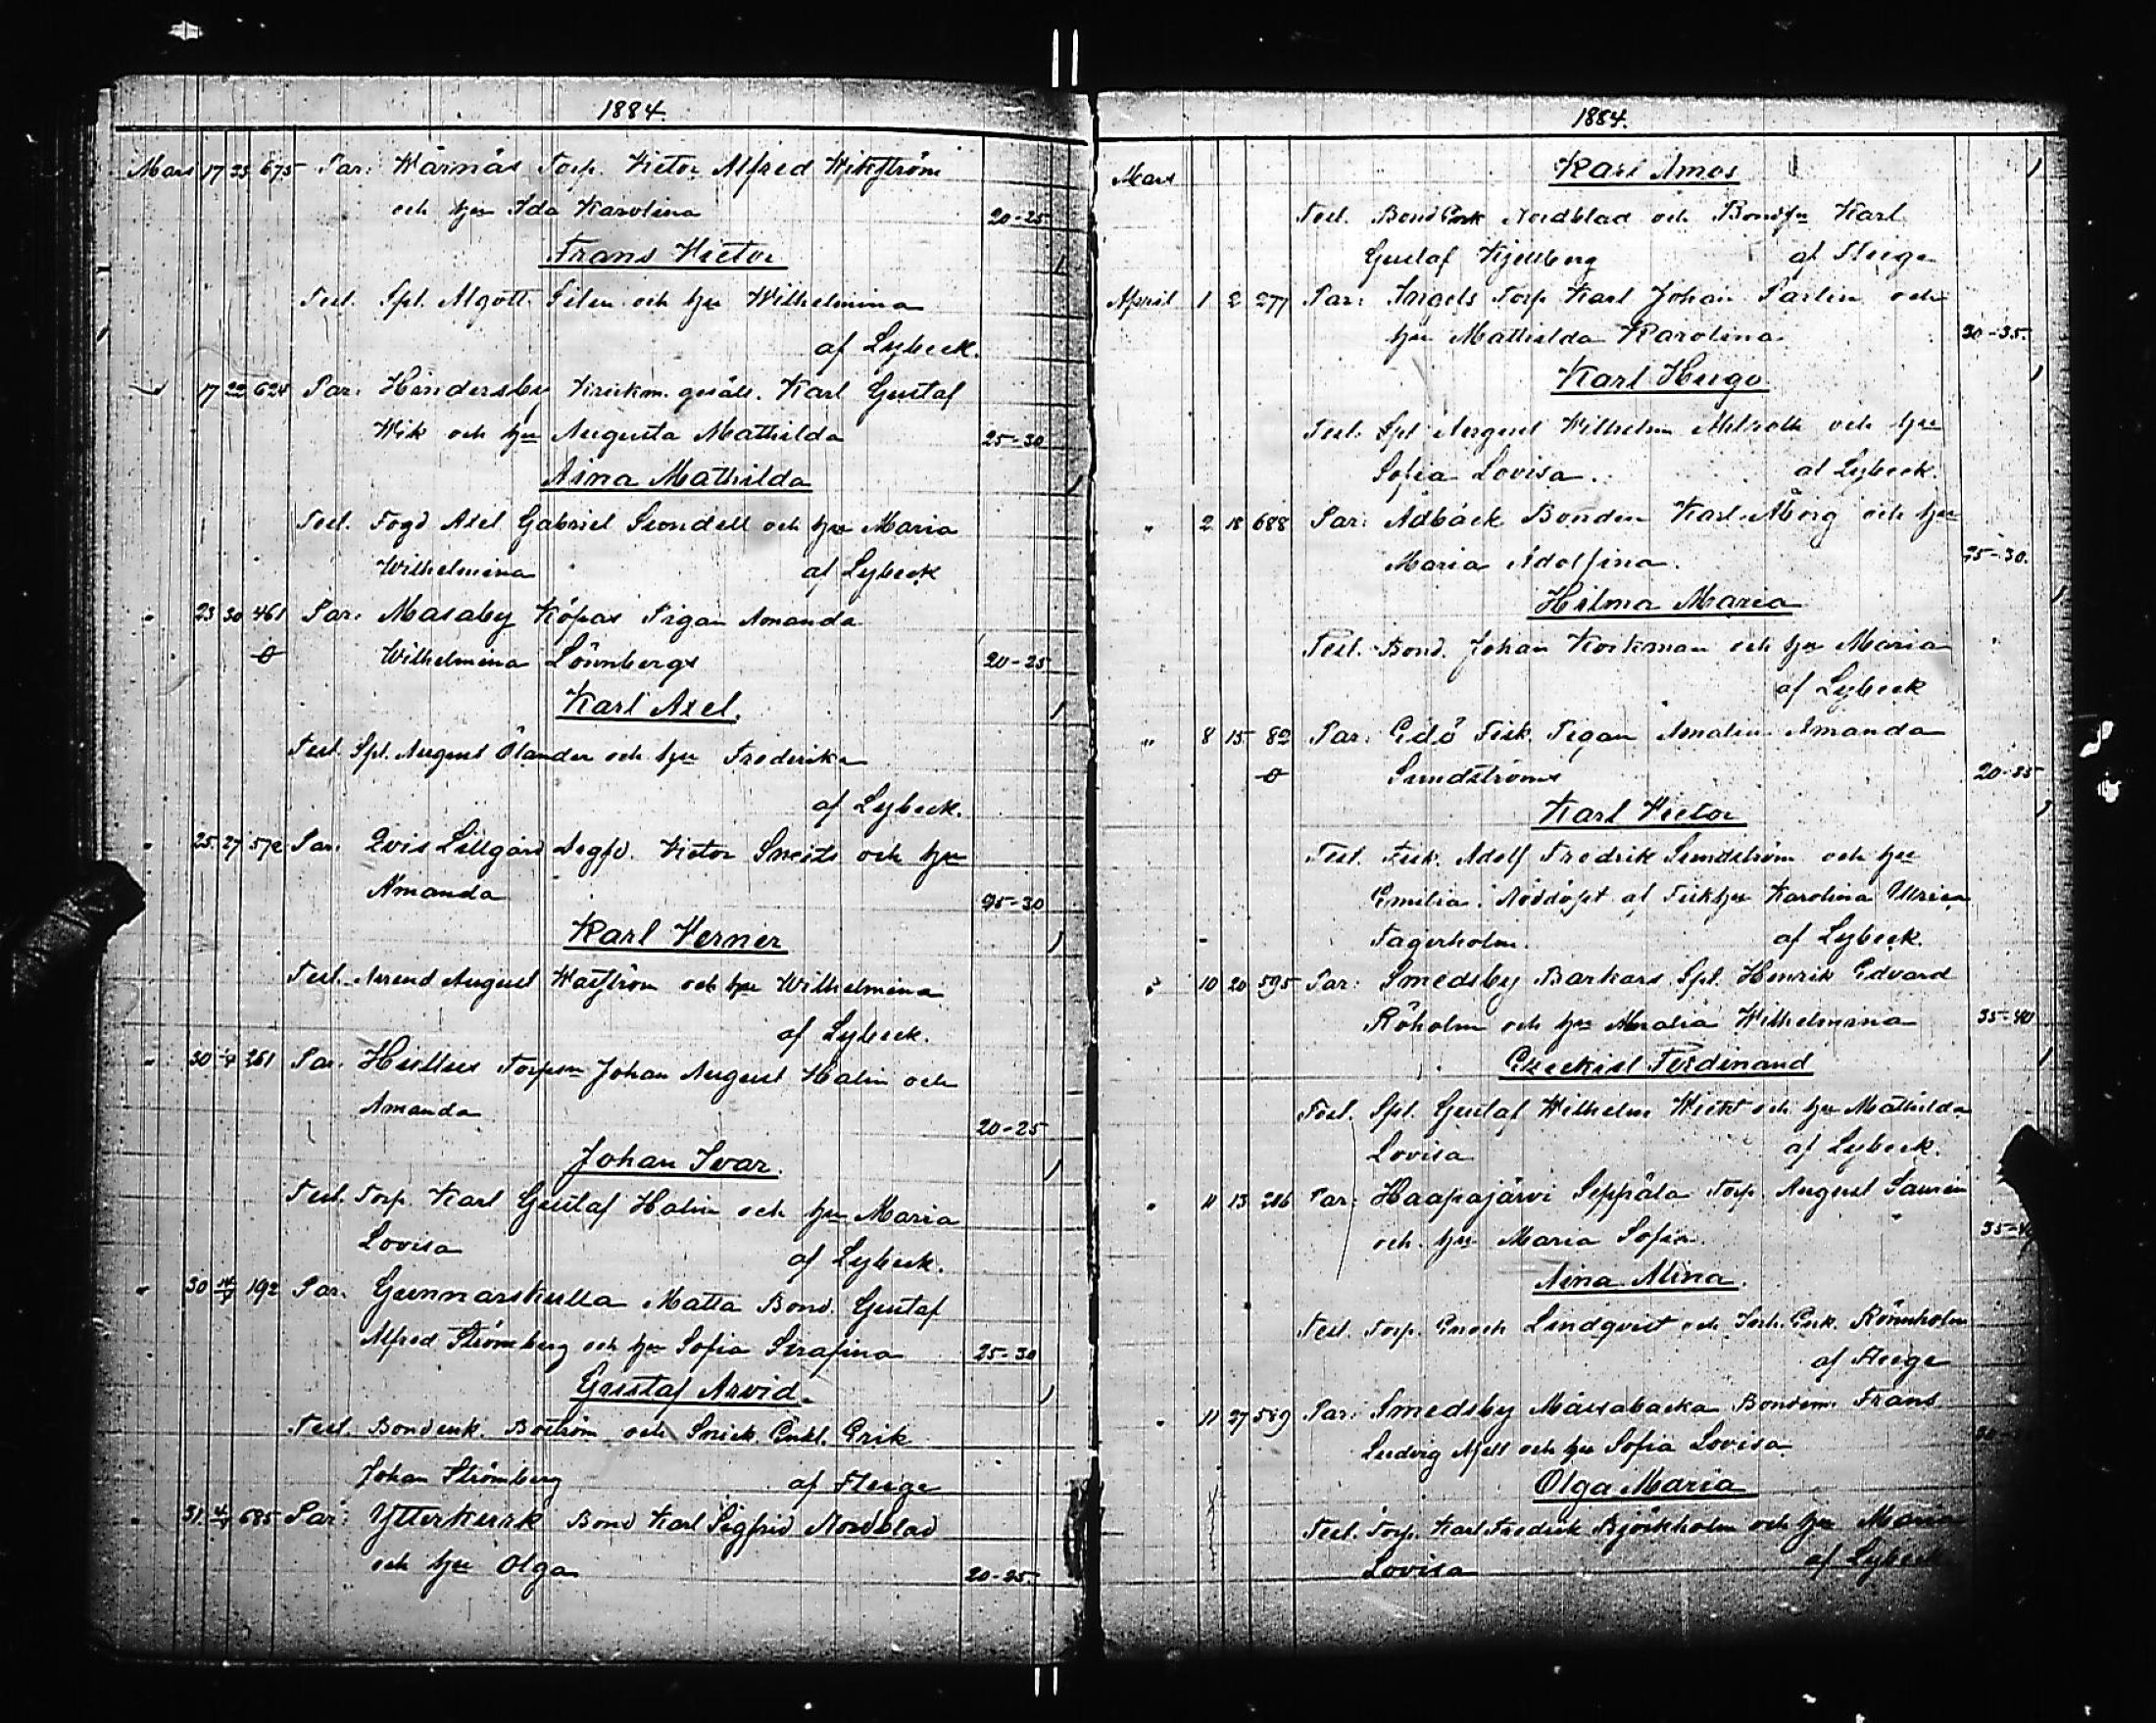 1884.
Mars 17 23 675 Par: Wärnäs Torp. Victor Alfred Wikström
och hu Ida Karolina 20-25
Frans Victor 1
Test. Spl. Algott Silen och hu Wilhelmina
af Lybeck.
17 22 624 Par: Hindersby Gustaf Karl
Wik och hu Augusta Mathilda 25-30
Aina Mathilda 1
Test. Fogd Axel Gabriel Sundell och hu Maria
Wilhelmina af Lybeck
" 23 30 461 Par: Masaby Köpas Pigan Amanda
o Wilhelmina Lönnbergs 20-25
Karl Axel. 1
Test. Spl. August Ölander och hu Frederika
af Lybeck.
" 25 27 572 Par. Qvis Lillgård Victor och hu
Amanda 25-30
Karl Verner 1
Test. Arrend August och hu Wilhelmina
af Lybeck.
" 30 261 Par. Johan August Halin och
Amanda 20-25
Johan Ivar. 1
Test. Torp. Karl Gustaf Halin och hu Maria
Lovisa af Lybeck.
" 30 192 Par. Gunnarskulla Matta Bond. Gustaf
Alfred Strömberg och hu Sofia Serafina 25-30
Gustaf Arvid. 1
Test. Bondenk. Boström och Snick. Enkl. Erik
Johan Strömberg af Fleege
" 31 685 Par: Ytterkurk Bond Karl Sigfrid Nordblad
och hu Olga 20-25.
1884.
Mars Karl Amos 1
Test. Nordblad och Karl
Gustaf Kjellberg af Fleege
April 1 2 277 Par: Ingels Torp. Karl Johan Parlin och
hu Mathilda Karolina 30-35.
Karl Hugo 1
Test. Spl August Wilhelm Ahlroth och hu
Sofia Lovisa. af Lybeck.
" 2 18 688 Par: Ådbäck Bonden Karl Åberg och hu
Maria Adolfina. 25-30.
Hilma Maria 1
Test. Bond. Johan Korkman och hu Maria
af Lybeck
" 8 15 82 Par: Edö Fisk. Pigan Amalia Amanda
o Sundströms 20-25
Karl Victor 1
Test. Fisk. Adolf Fredrik Sundström och hu
Emilia. Nöddöpt af Fiskhu Karolina Ulrica
Fagerholm. af Lybeck.
" 10 20 595 Par: Smedsby Barkars Spl. Henrik Edvard
Röholm och hu Amalia Wilhelmina 35-40
Ezeekiel Ferdinand 1
Test. Spl. Gustaf Wilhelm och hu Mathilda
Lovisa af Lybeck.
" 11 13 216 Par: Haapajärvi Seppälä Torp. August
och hu Maria Sofia.
Aina Alina.
Test. Torp. Enoch Lindqvist och Rönnholm
af Fleege
" 11 27 589 Par: Smedsby Frans
Ludvig och hu Sofia Lovisa
Olga Maria
Test. Torp. Karl Fredrik Björkholm och hu Maria
Lovisa af Lybeck